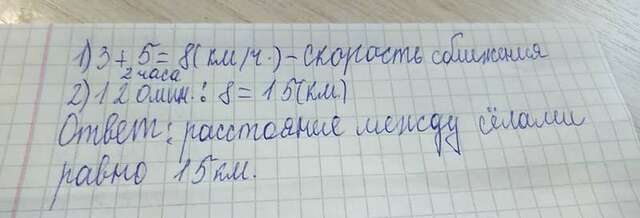 1) 3 + 5 = 8 (км/ч.) - скорость сближения
2 часа
2) 120 мин. : 8 = 15 (км)
Ответ: расстояние между сёлами
равно 15 км.